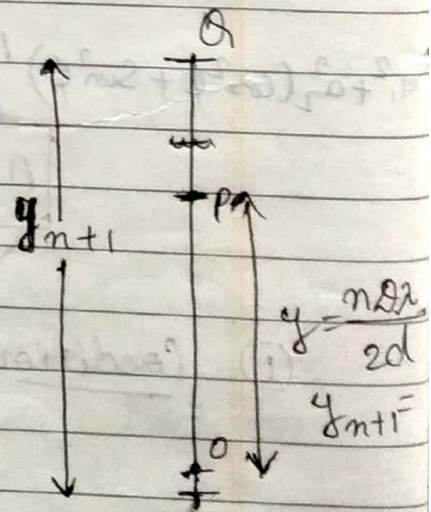 Q
P
y n+1
y = nDλ / 2d
y n+1 =
O